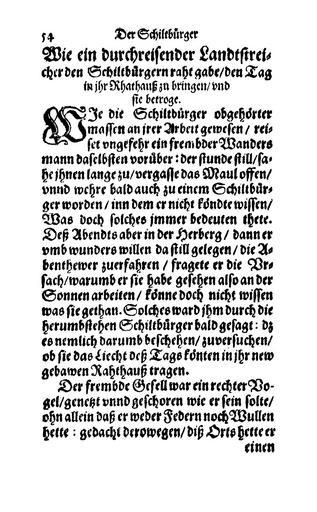 54 Der Schiltbürger
Wie ein durchreisender Landtstrei-
cher den Schiltbürgern raht gabe/den Tag
in jhr Rhathauß zu bringen/vnd
sie betroge.
WJe die Schiltbürger obgehörter
massen an irer Arbeit gewesen/ rei-
set vngefehr ein frembder Wanders
mann daselbsten vorüber: der stunde still/sa-
he jhnen lange zu/vergasse das Maul offen/
vnnd wehre bald auch zu einem Schiltbür-
ger worden/inn dem er nicht köndte wissen/
Was doch solches jmmer bedeuten thete.
Deß Abendts aber in der Herberg/ dann er
vmb wunders willen da still gelegen/ die A-
benthewer zuerfahren / fragete er die Vr-
sach/warumb er sie habe gesehen also an der
Sonnen arbeiten/ könne doch nicht wissen
was sie gethan. Solches ward jhm durch die
herumbstehen Schiltbürger bald gesagt: dz
es nemlich darumb beschehen/zuversuchen/
ob sie das Liecht deß Tags könten in jhr new
gebawen Rahthauß tragen.
Der frembde Gesell war ein rechter Vo-
gel/genetzt vnnd geschoren wie er sein solte/
ohn allein daß er weder Federn noch Wullen
hette : gedacht derowegen/ diß Orts hette er
einen